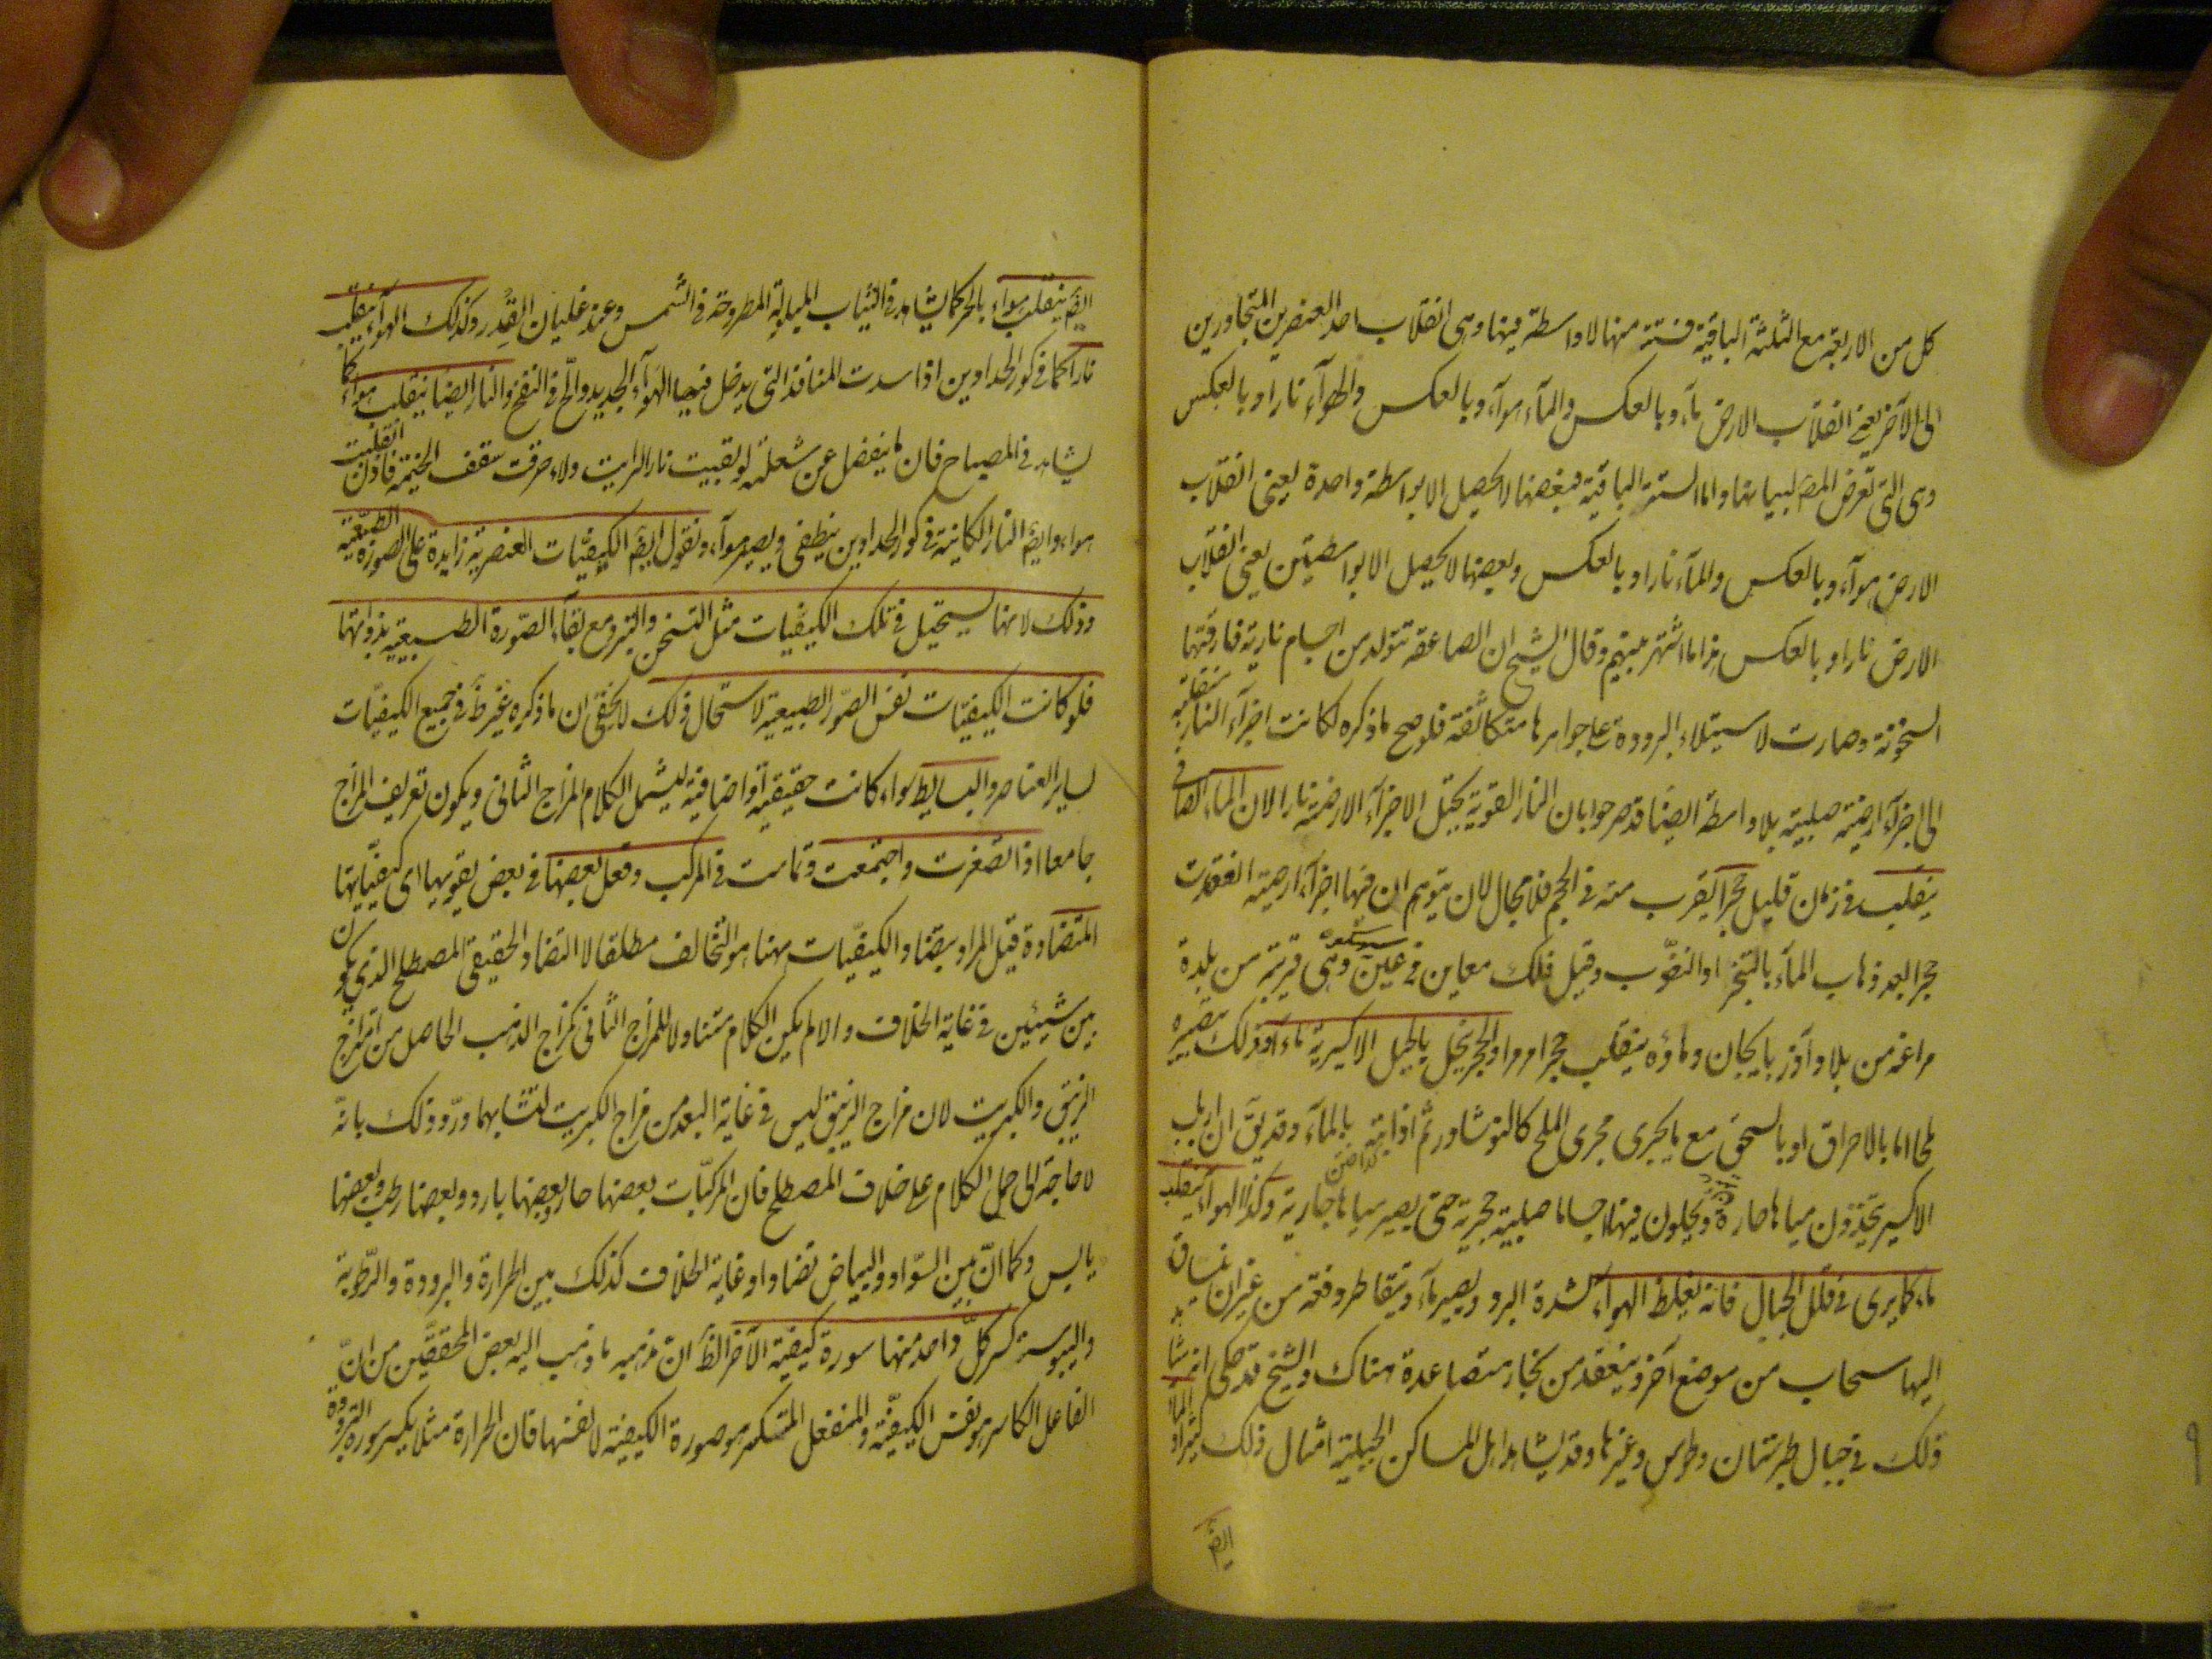 كل من الاربعة مع الثلثة الباقية فستة منها لا واسطة فيها وهى انقلاب احد العنصرين المتجاورين
الى الآخر يعنى انقلاب الارض مآء وبالعكس والمآء هوآء وبالعكس والهوآء نارا وبالعكس
وهى التى تعرض المصَ لبيانها واما الستة الباقية فبعضها لا يحصل الا بواسطة واحدة يعنى انقلاب
الارض هوآء وبالعكس والمآء نارا وبالعكس وبعضها لا يحصل الا بواسطتين يعنى انقلاب
الارض نارا وبالعكس هذا ما اشتهر بينهم وقال الشيخ ان الصاعقة تتولد من اجسام نارية فارقتها
السخونة وصارت لاستيلاء البرودة على جواهرها متكاثفة فلو صح ما ذكره لكانت اجزآء النار منقلبة
الى اجزآء ارضية صلبية بلا واسطة ايضا قد صرحوا بان النار القوية تحيل الاجزآء الارضية نارا لان الماء الصافى
ينقلب فى زمان قليل حجرا يقرب منه فى الحجم فلا مجال لان يتوهم ان فيها اجزآء ارضية انعقدت
حجرا بعد ذهاب المآء بالتبخر او النضوب وقيل ذلك معاين فى عين وهى قرية من بلدة
مراغه من بلاد آذربايجان وماؤه ينقلب حجرا مرمرا والحجر ينحل بالحيل الاكسيرية ماء وذلك بتصييره
ملحا اما بالاحراق او بالسحق مع ما يجرى مجرى الملح كالنوشادر ثم اذابته بالمآء وقد يقَ ان ارباب
الاكسير يتخذون مياها حارة ويحلون فيها اجسادا صلبية حجرية حتى يصير مياها جارية وكذا الهواء ينقلب
ماء كما يرى فى قلل الجبال فانه يغلظ الهوآء لشدة البرد ويصير مآء ويتقاطر دفعة من غير ان ينساق
اليها سحاب من موضع آخر وينعقد من بخار متصاعدة هناك والشيخ قد حكى انه شاهد
ذلك فى جبال طبرستان وطوس وغيرهما وقد يشاهد اهل المساكن الجبلية امثال ذلك كثيرا والماء
ايضَ
ايضَ ينقلب هواء بالحر كما يشاهد فى الثياب المبلولة المطروحة فى الشمس وعند غليان القدر وكذلك الهوآء ينقلب
نارا كما فى كور الحدادين اذا سدت المنافذ التى يدخل فيها الهوآء الجديد والحّ فى النفخ والنار ايضا ينقلب هواء كما
يشاهد فى المصباح فان ما ينفصل عن شعلته لو بقيت نارا لرايت ولاحرقت سقف الخيمة فاذن انقلبت
هواء وايضَ النار الكاينة فى كور الحدادين ينطفى ويصير هوآء ونقول ايضَ الكيفيّات العنصرية زايدة على الصورة الطبيعية
وذلك لانها يستحيل فى تلك الكيفيّات مثل التسخن والتبرد مع بقآء الصّورة الطبيعية بذواتها
فلو كانت الكيفيّات نفس الصّور الطبيعية لاستحال ذلك لا يخفى ان ما ذكره غير ظَ فى جميع الكيفيّات
لساير العناصر والبسايط سواء كانت حقيقية او اضافية ليشمل الكلام المزاج الثانى ويكون تعريف المزاج
جامعا اذا تصغرت واجتمعت وتماست فى المركب وفعل بعضها فى بعض بقويها اى كيفيّاتها
المتضادة قيل المراد بتضاد الكيفيّات ههنا هو التخالف مطلقا لا التضاد الحقيقى المصطلح الذى يكون
بين شيئين فى غاية الخلاف والا لم يكن الكلام متناولا للمزاج الثانى كمزاج الذهب الحاصل من امتزاج
الزيبق والكبريت لان مزاج الزيبق ليس فى غاية البعد من مزاج الكبريت لتشابهما وردّ ذلك بانّه
لا حاجة الى حمل الكلام على خلاف المصطلح فان المركبّات بعضها حار وبعضها بارد وبعضها رطب وبعضها
يابس وكما انّ بين السّواد والبياض تضادا وغاية الخلاف كذلك بين الحرارة والبرودة والرّطوبة
واليبوسة كسر كلّ واحد منها سورة كيفية الآخر الظَ انّ مذهبه ما ذهب اليه بعض المحققّين من انّ
الفاعل الكاسر هو نفس الكيفيّة والمنفعل المنكسر هو صورة الكيفية لا نفسها فان الحرارة مثلا يكسر سورة البرودة